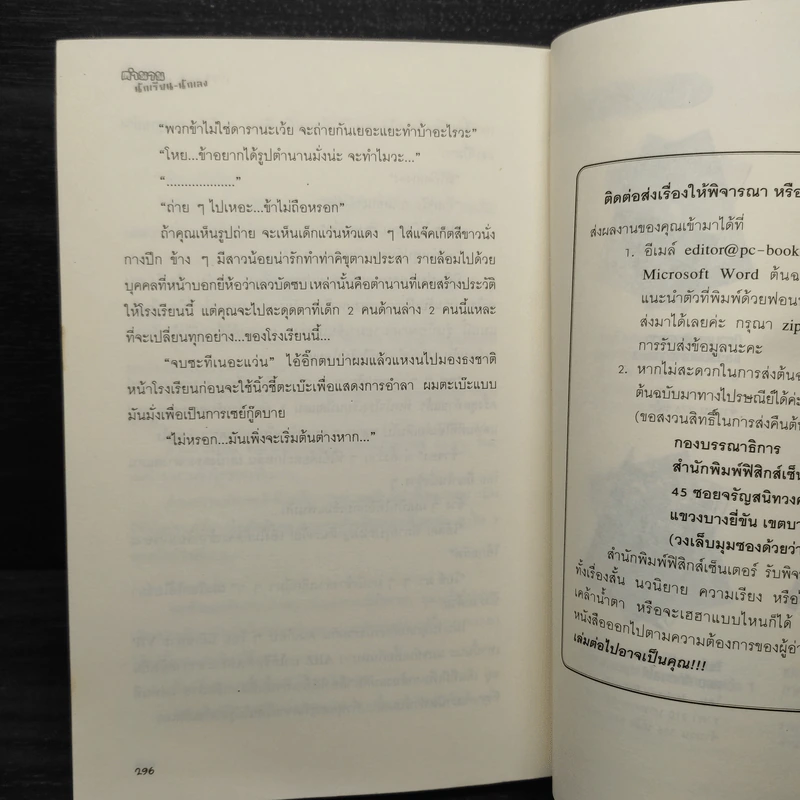 ตำนาน
นักเรียน-นักเลง
“พวกข้าไม่ใช่ดารานะเว้ย จะถ่ายกันเยอะแยะทำบ้าอะไรวะ”
“โหย...ข้าอยากได้รูปตำนานมั่งน่ะ จะทำไมวะ...”
“....................”
“ถ่าย ๆ ไปเหอะ...ข้าไม่ถือหรอก”
ถ้าคุณเห็นรูปถ่าย จะเห็นเด็กแว่นหัวแดง ๆ ใส่แจ๊คเก็ตสีขาวนั่ง
กางปีก ข้าง ๆ มีสาวน้อยน่ารักทำท่าคิขุตามประสา รายล้อมไปด้วย
บุคคลที่หน้าบอกยี่ห้อว่าเลวบัดซบ เหล่านั้นคือตำนานที่เคยสร้างประวัติ
ให้โรงเรียนนี้ แต่คุณจะไปสะดุดตาที่เด็ก 2 คนด้านล่าง 2 คนนี้แหละ
ที่จะเปลี่ยนทุกอย่าง...ของโรงเรียนนี้...
“จบซะทีเนอะแว่น” ไอ้อิ๊กตบบ่าผมแล้วแหงนไปมองธงชาติ
หน้าโรงเรียนก่อนจะใช้นิ้วชี้ตะเบ๊ะเพื่อแสดงการอำลา ผมตะเบ๊ะแบบ
มันมั่งเพื่อเป็นการเซย์กู๊ดบาย
“ไม่หรอก...มันเพิ่งจะเริ่มต้นต่างหาก...”
296
ติดต่อส่งเรื่องให้พิจารณา หรือ
ส่งผลงานของคุณเข้ามาได้ที่
1. อีเมล์ editor@pc-book
Microsoft Word ต้นฉ
แนะนำตัวที่พิมพ์ด้วยฟอน
ส่งมาได้เลยค่ะ กรุณา zip
การรับส่งข้อมูลนะคะ
2. หากไม่สะดวกในการส่งต้นฉ
ต้นฉบับมาทางไปรษณีย์ได้ค่ะ
(ขอสงวนสิทธิ์ในการส่งคืนต้น
กองบรรณาธิการ
สำนักพิมพ์ฟิสิกส์เซ็น
45 ซอยจรัญสนิทวงศ
แขวงบางยี่ขัน เขตบา
(วงเล็บมุมซองด้วยว่า
สำนักพิมพ์ฟิสิกส์เซ็นเตอร์ รับพิจ
ทั้งเรื่องสั้น นวนิยาย ความเรียง หรือ
เคล้าน้ำตา หรือจะเฮฮาแบบไหนก็ได้
หนังสือออกไปตามความต้องการของผู้อ่า
เล่มต่อไปอาจเป็นคุณ!!!